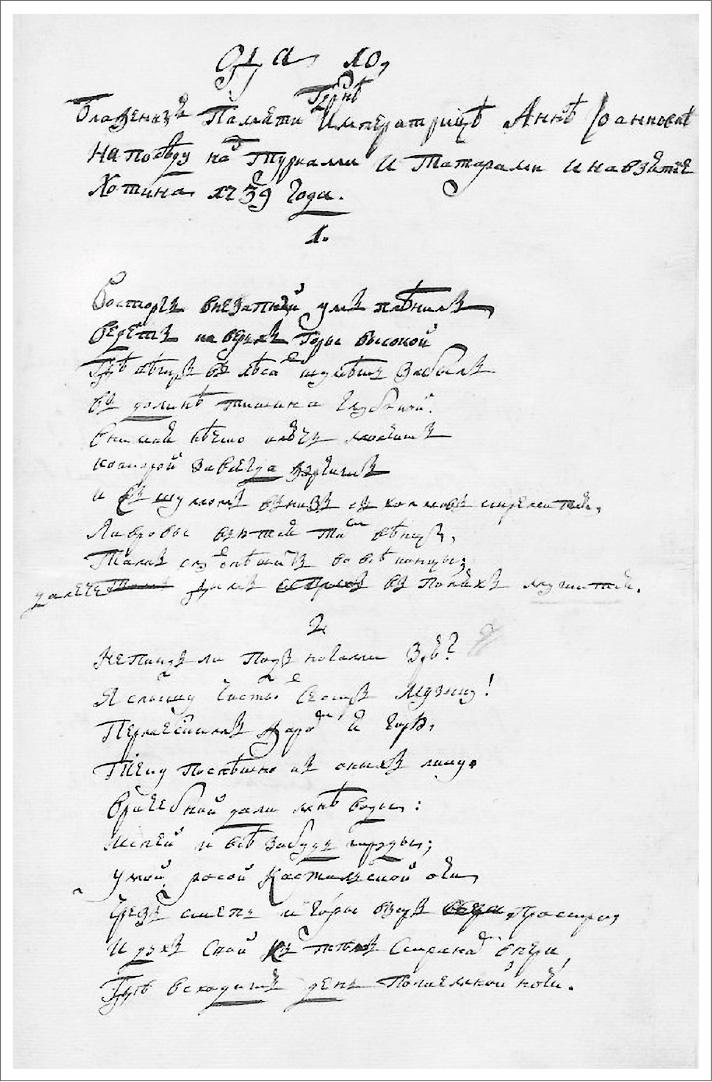 Ода 10,
Блаженныя Памяти Гдрнѣ Императрицѣ Аннѣ Іоанновнѣ
На побѣду над Турками и Татарами и на взятїе
Хотина 1739 Года.
1.
Восторгъ внезапный умъ плѣнилъ
Ведетъ на верьхъ горы высокой
Гдѣ вѣтръ въ лѣсах шумѣть забылъ
Въ долинѣ тишина глубокой.
Внимая нѣчто ключь молчитъ
которой завсегда журчитъ
и съ шумомъ внизъ съ холмовъ стремится,
Лавровы вьются там вѣнцы,
Тамъ слухъ спѣшитъ во всѣ концы;
далече дымъ въ поляхъ курится.
2
Не Пиндъ ли подъ ногами зрю?
Я слышу чистых сестръ музыку!
Пермесскимъ жаромъ я горю,
Теку поспѣшно къ оныхъ лику.
Врачебной дали мнѣ воды:
испей и всѣ забудь труды;
умой росой Кастальской очи,
Чрезъ степь и горы взоръ простри,
И духъ свой къ тѣмъ странам впери,
Гдѣ всходитъ день по темной ночи.